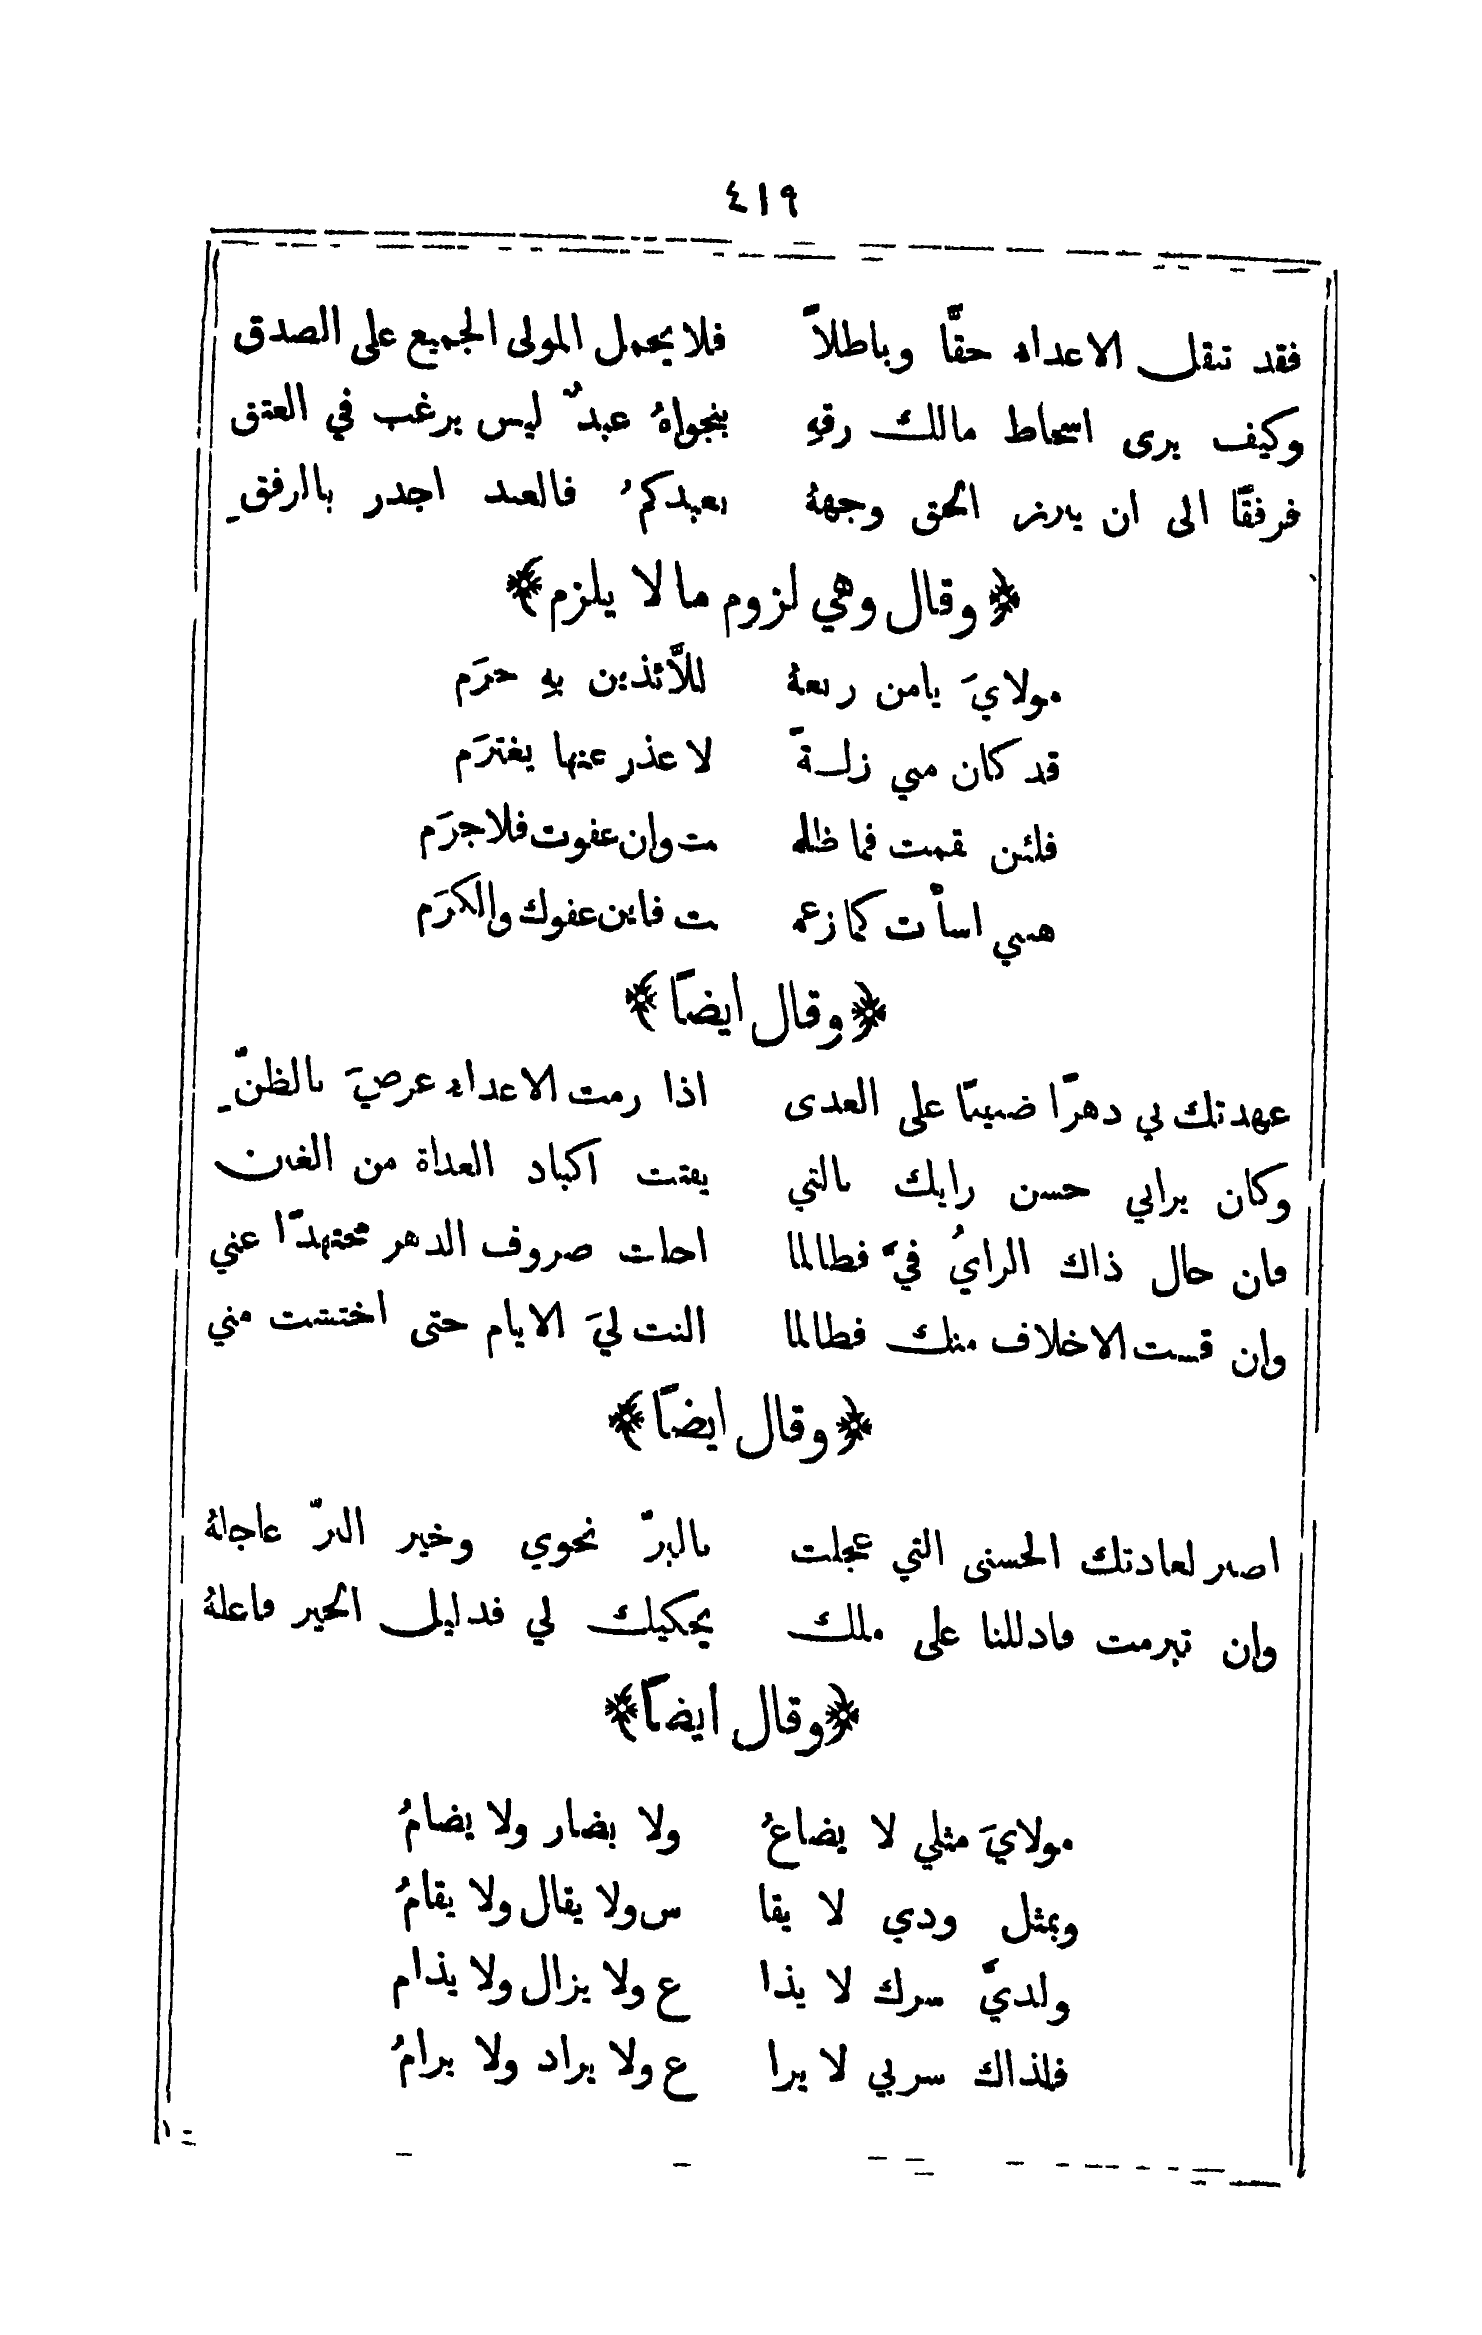 ٤١٩
فقد تنقل الاعداء حقًّا وباطلاً فلا يحمل المولى الجميع على الصدق
وكيف يرى اسخاط مالك رقهِ بنجواهُ عبدٌ ليس يرغب في العتق
فرفقًا الى ان يبرز الحق وجههُ بعبدكمُ فالعبد اجدر بالرفقِ
﴿ وقال وهي لزوم ما لا يلزم ﴾
مولايَ يامن ربعهُ للَّائذين بهِ حرَم
قد كان مني زلةً لا عذر عنها يفترَم
فلئن نقمت فما ظلم ت وان عفوت فلا جرَم
هبني اسأت كما زعم ت فاين عفوك والكرَم
﴿ وقال ايضاً ﴾
عهدتك بي دهرًا ضنينًا على العدى اذا رمت الاعداء عرضيَ بالظنِّ
وكان برايي حسن رايك بالتي يفتت اكباد العداة من الغبن
فان حال ذاك الرايُ فيَّ فطالما احلت صروف الدهر مجتهدًا عني
وان قست الاخلاف منك فطالما النت ليَ الايام حتى اختشت مني
﴿ وقال ايضاً ﴾
اصبر لعادتك الحسنى التي عجلت بالبرّ نحوي وخير البرّ عاجلهُ
وان تبرمت فادللنا على ملك يحكيك لي فدليل الخير فاعلهُ
﴿ وقال ايضاً ﴾
مولايَ مثلي لا يضاعُ ولا يضار ولا يضامُ
وبمثل ودي لا يقا س ولا يقال ولا يقامُ
ولديَّ سرك لا يذا ع ولا يزال ولا يذام
فلذاك سربي لا يرا ع ولا يراد ولا يرامُ